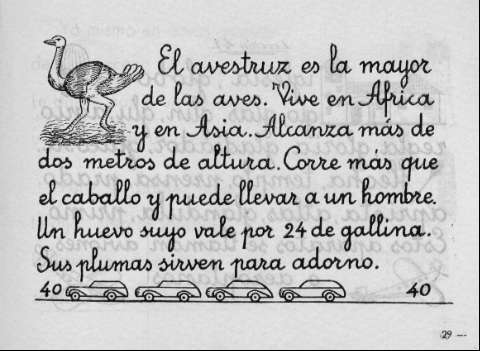 El avestruz es la mayor
de las aves. Vive en Africa
y en Asia. Alcanza más de
dos metros de altura. Corre más que
el caballo y puede llevar a un hombre.
Un huevo suyo vale por 24 de gallina.
Sus plumas sirven para adorno.
40 40
29